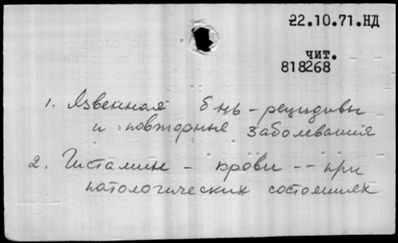 22.10.71.НД
чит.
818268
1. Язвенная б нь - рецидивы
и повторные заболевания
2. Гистамин - крови -- при
патологических состояниях